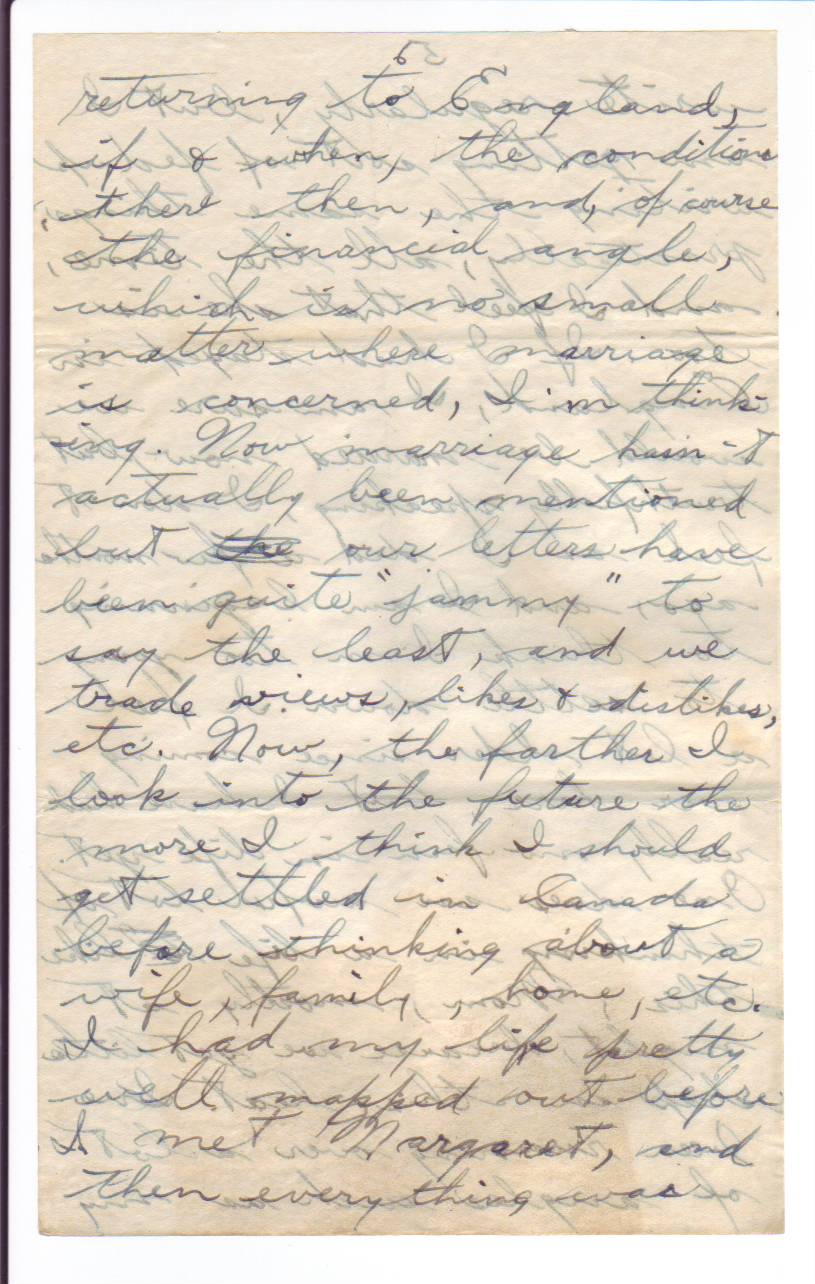 5
returning to England,
if & when, the conditions
there then, and, of course
the financial angle,
which is no small
matter where marriage
is concerned, I'm think-
ing. Now marriage hasn't
actually been mentioned
but the our letters have
been quite "jammy", to
say the least, and we
trade views, likes & dislikes,
etc. Now, the farther I
look into the future the
more I think I should
get settled in Canada
before thinking about a
wife, family, home, etc.
I had my life pretty
well mapped out before
I met Margaret, and
then everything was